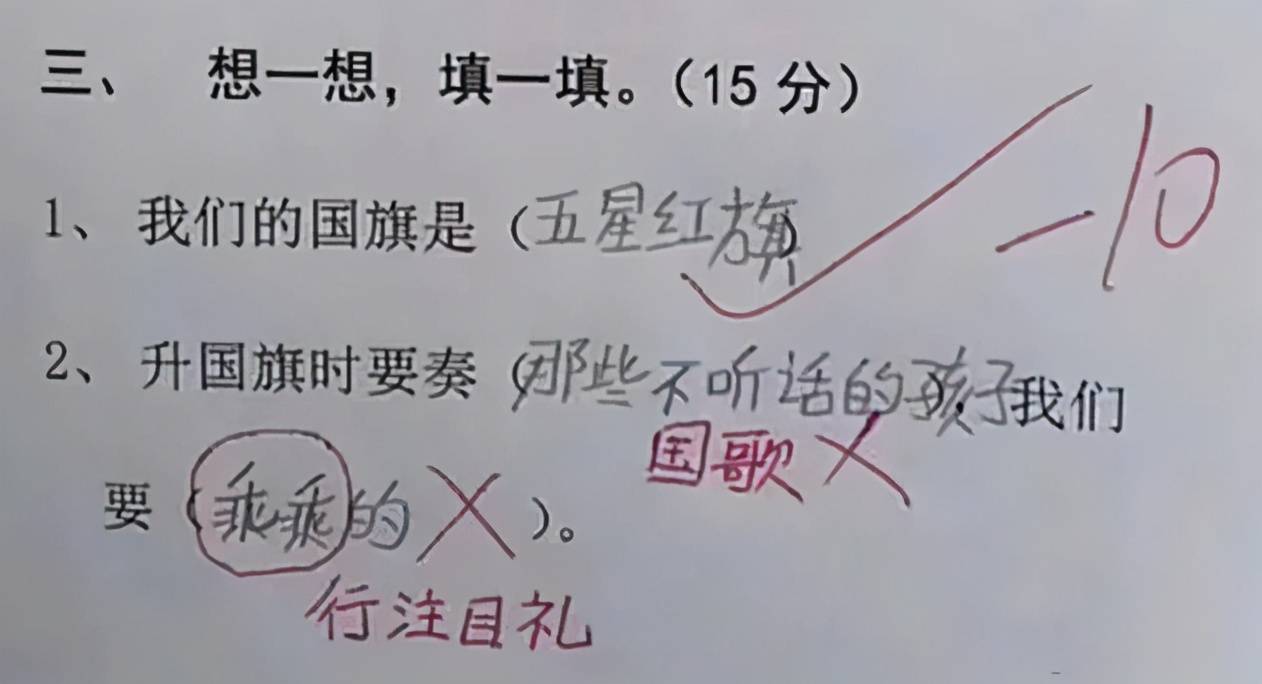 三、 想一想，填一填。（15 分）
1、 我们的国旗是（五星红旗）
-10
2、 升国旗时要奏（那些不听话的孩子），我们
国歌
要（乖乖的）。
行注目礼